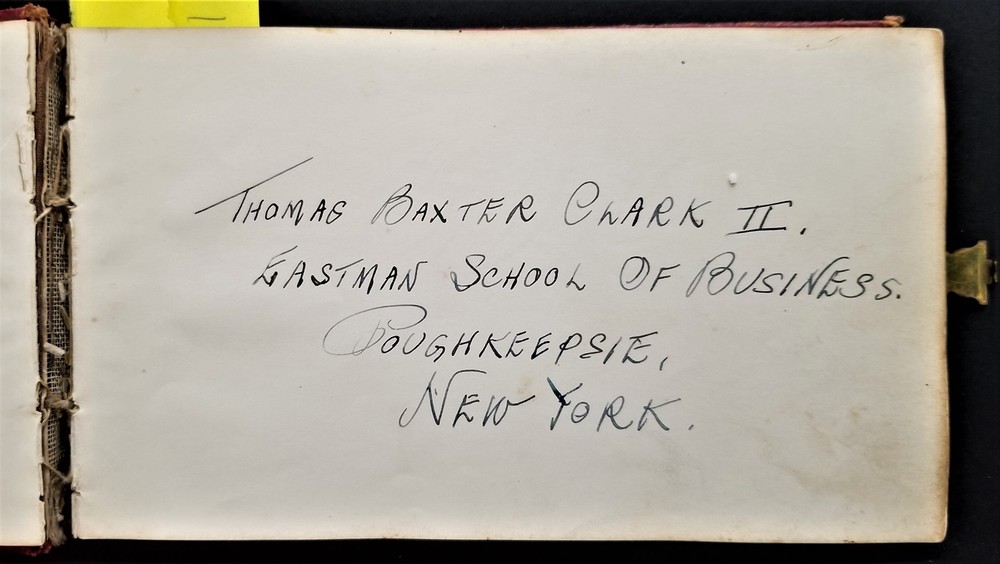 Thomas Baxter Clark II.
Eastman School Of Business.
Poughkeepsie,
New York.